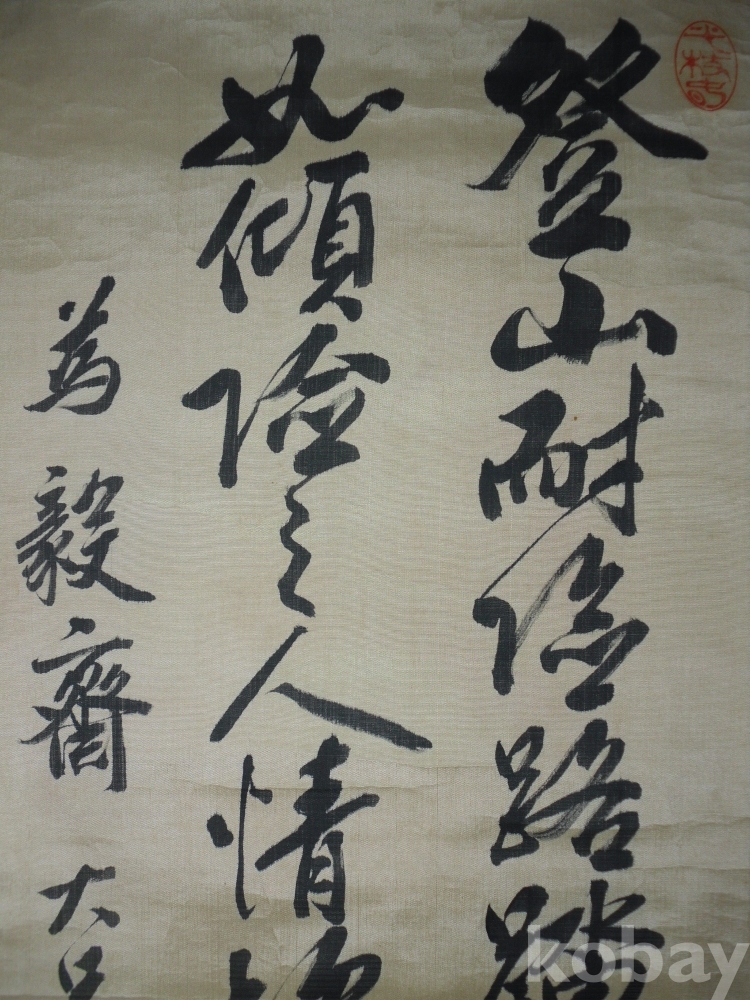 登山耐險路踏
如傾險之人情
為毅齋大
kobay